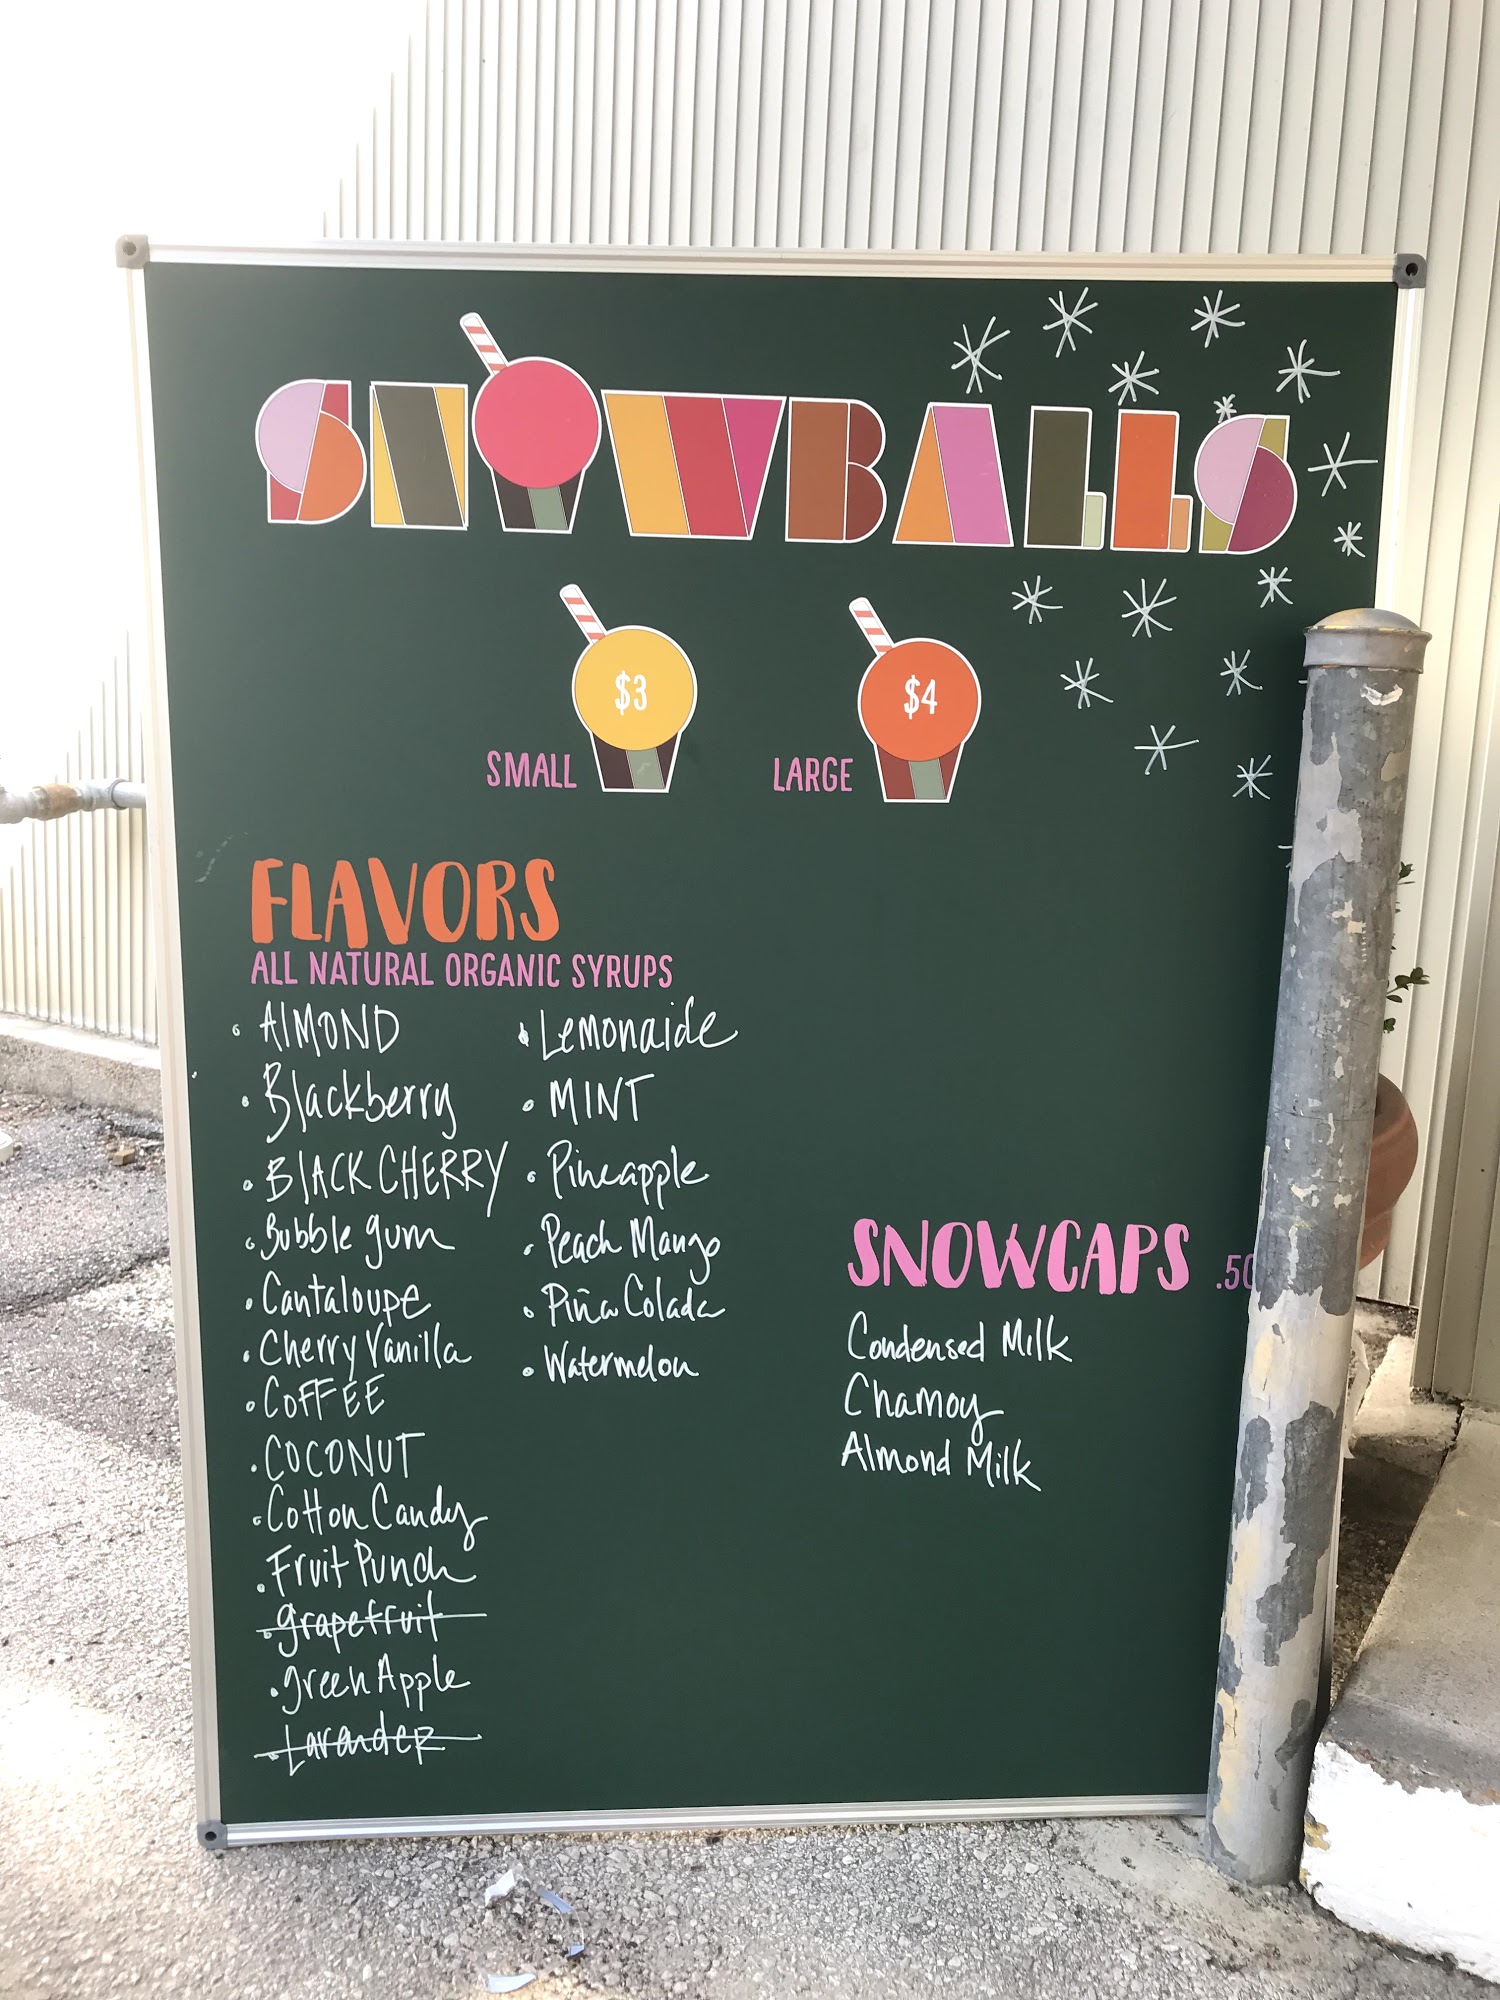 SNOWBALLS
$3
$4
SMALL
LARGE
FLAVORS
ALL NATURAL ORGANIC SYRUPS
• ALMOND
• Blackberry
• BLACK CHERRY
• Bubble gum
• Cantaloupe
• Cherry Vanilla
• COFFEE
• COCONUT
• Cotton Candy
• Fruit Punch
• grapefruit
• green Apple
• Lavender
• Lemonaide
• MINT
• Pineapple
• Peach Mango
• Piña Colada
• Watermelon
SNOWCAPS .50
Condensed Milk
Chamoy
Almond Milk